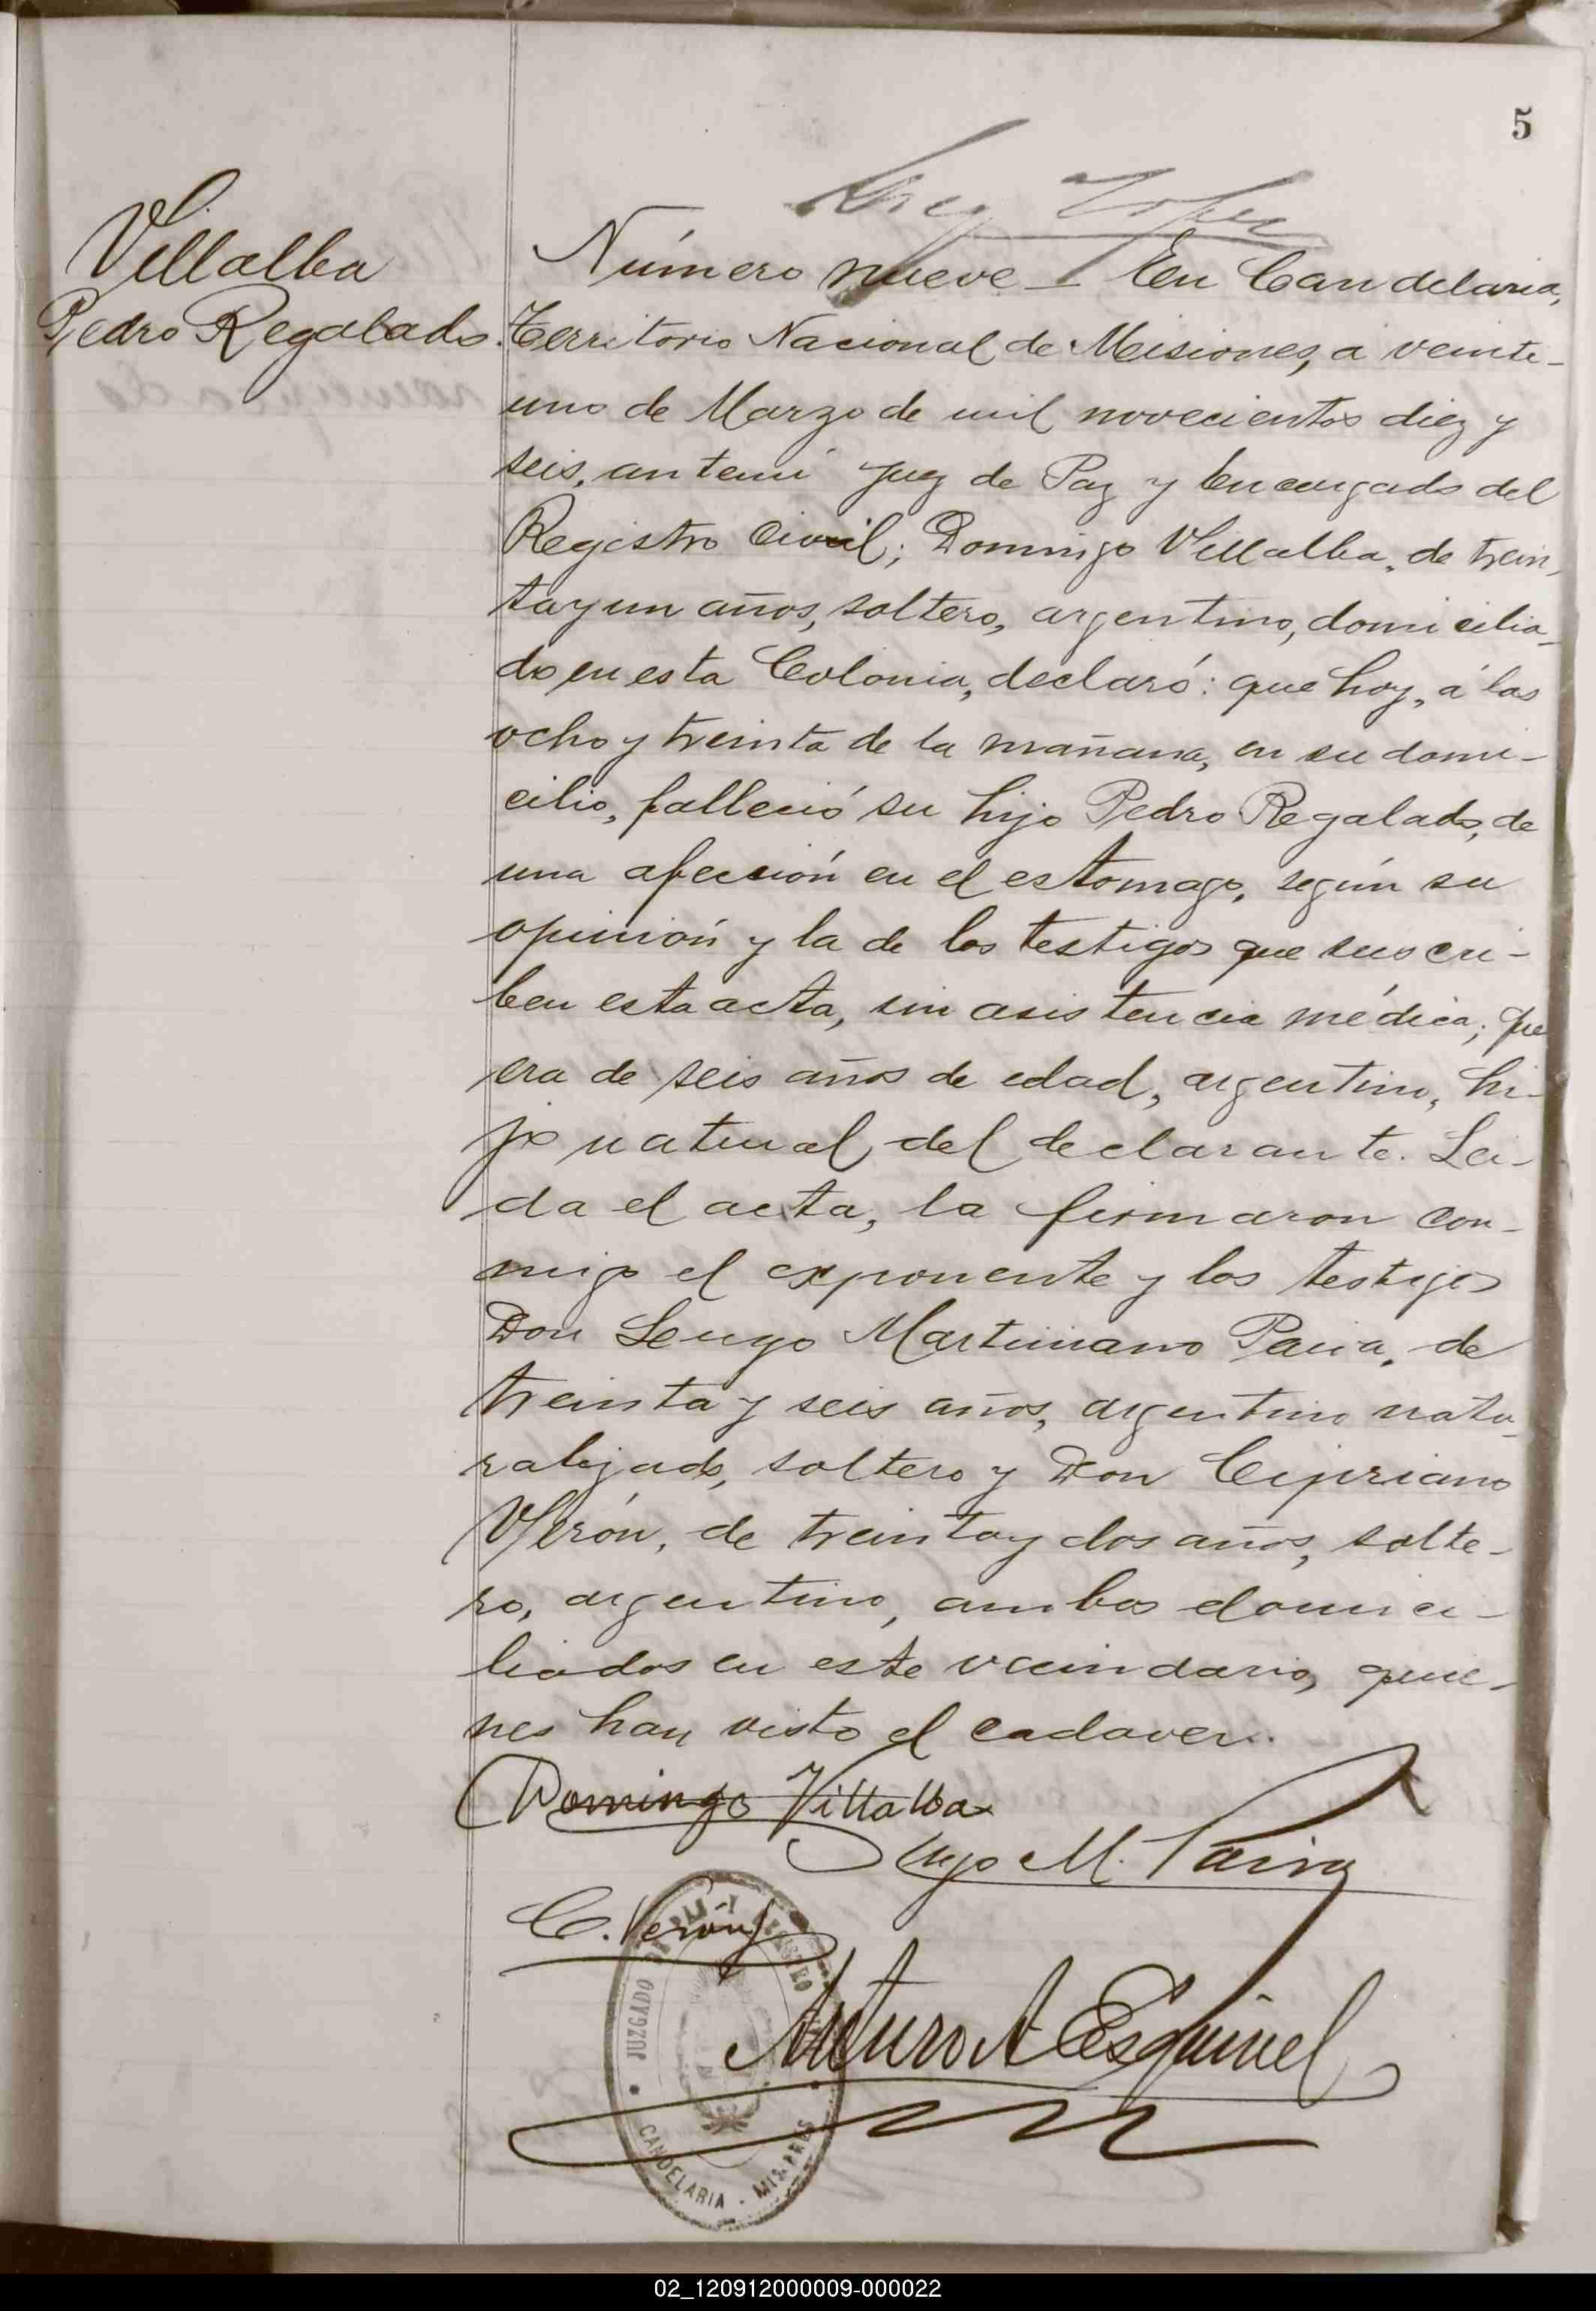 5
Villalba
Pedro Regalado.
Número nueve – En Candelaria,
Territorio Nacional de Misiones, a veinti-
uno de Marzo de mil novecientos diez y
seis, ante mi Juez de Paz y Encargado del
Registro Civil; Domingo Villalba, de trein-
ta y un años, soltero, argentino, domicilia-
do en esta Colonia, declaró: que hoy, á las
ocho y treinta de la mañana, en su domi-
cilio, falleció su hijo Pedro Regalado, de
una afección en el estomago, según su
opinión y la de los testigos que suscri-
ben esta acta, sin asistencia médica; que
era de seis años de edad, argentino, hi-
jo natural del declarante. Lei-
da el acta, la firmaron con-
migo el exponente y los testigos
Don Martiniano Paiva, de
treinta y seis años, argentino natu-
ralizado, soltero y Don Cipriano
Verón, de treinta y dos años, solte-
ro, argentino, ambos domici-
liados en este vecindario, quie-
nes han visto el cadaver.
Domingo Villalba
M. Paiva
C. Verón
Arturo A Esquivel
JUZGADO DE PAZ Y REGISTRO
CANDELARIA - MISIONES
02_120912000009-000022